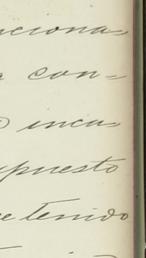 nciona=
con=
inca=
puesto
tenido